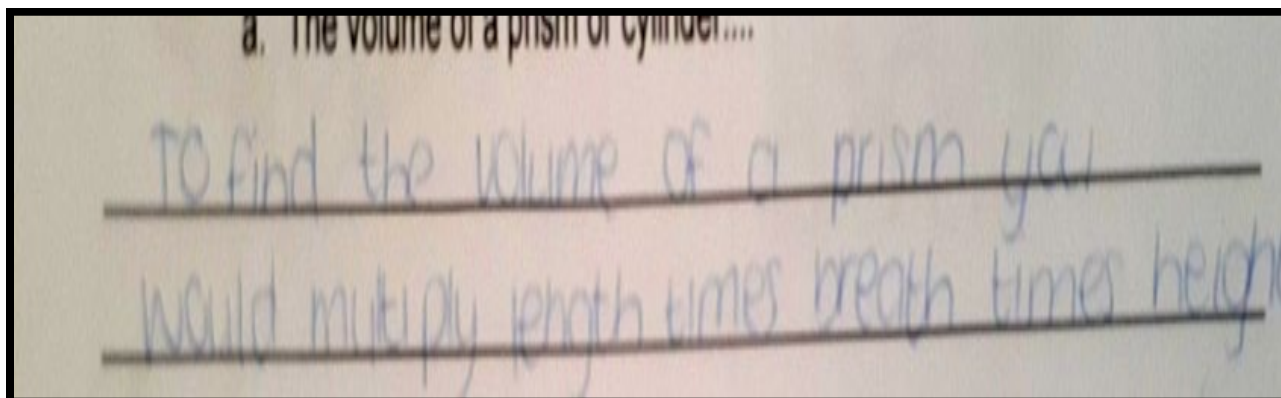 a. The volume of a prism or cylinder....
To find the volume of a prism you
would mutiply length times breath times height